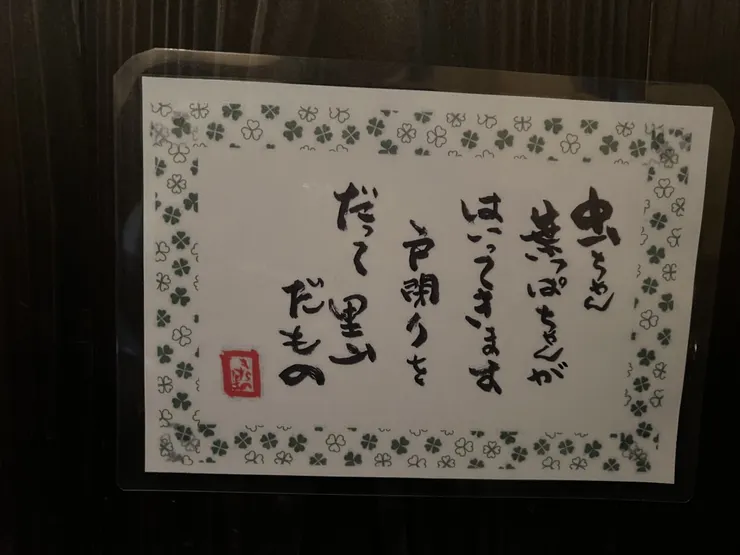 虫ちゃん
葉っぱちゃんが
はいってきます
戸閉りを
だって里山
だもの